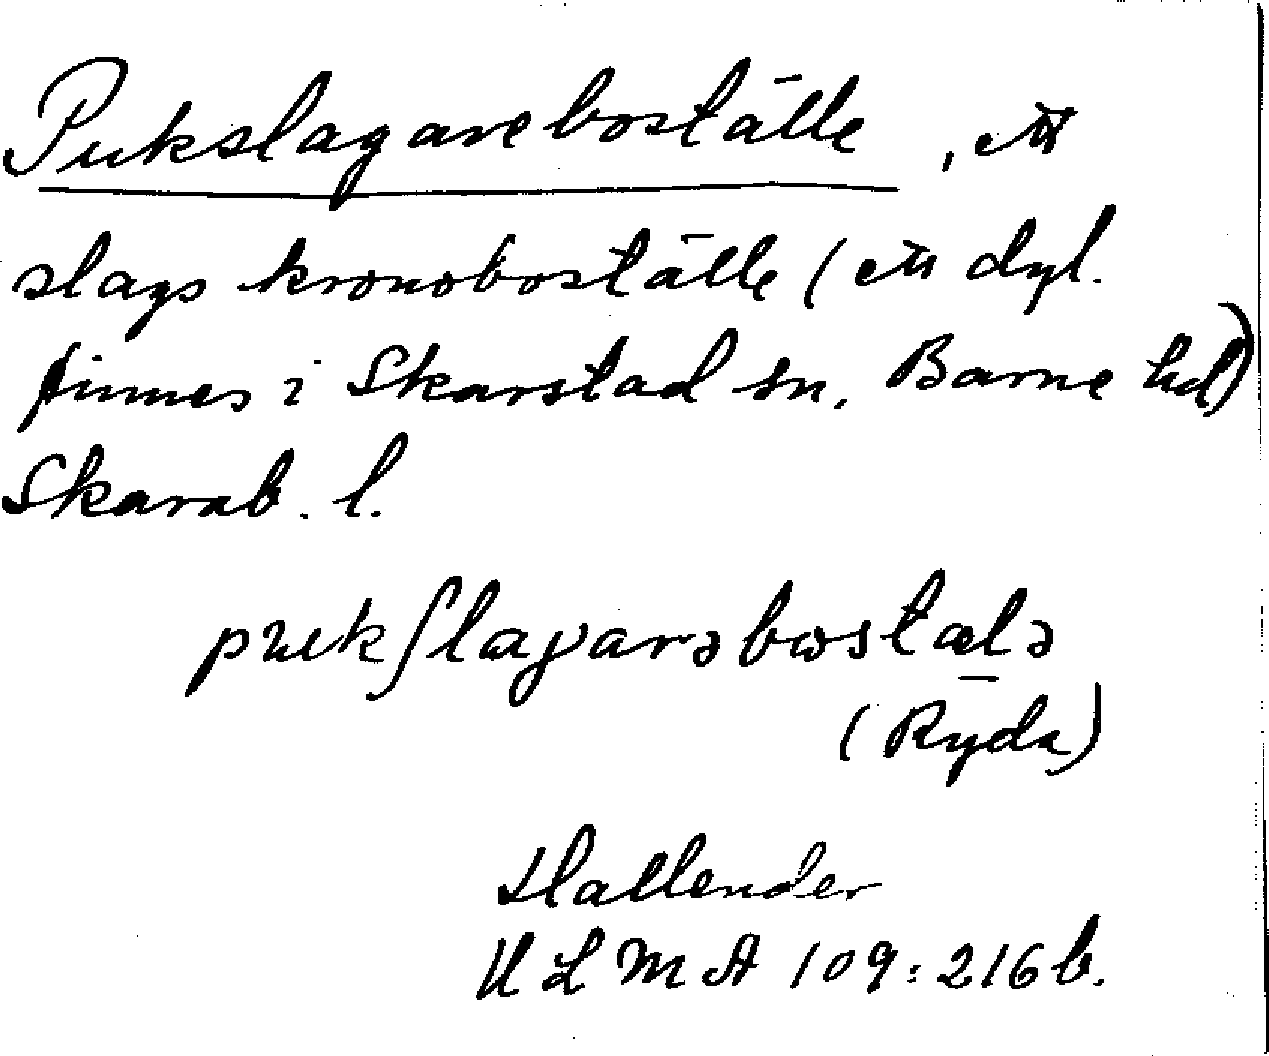 Pukslagareboställe, ett
slags kronoboställe (ett dyl.
finnes i Skarstad sn, Barne hd)
Skarab. l.
pukʃlagarəbostælə
(Ryda)
Hallender
ULMA 109:216 b.